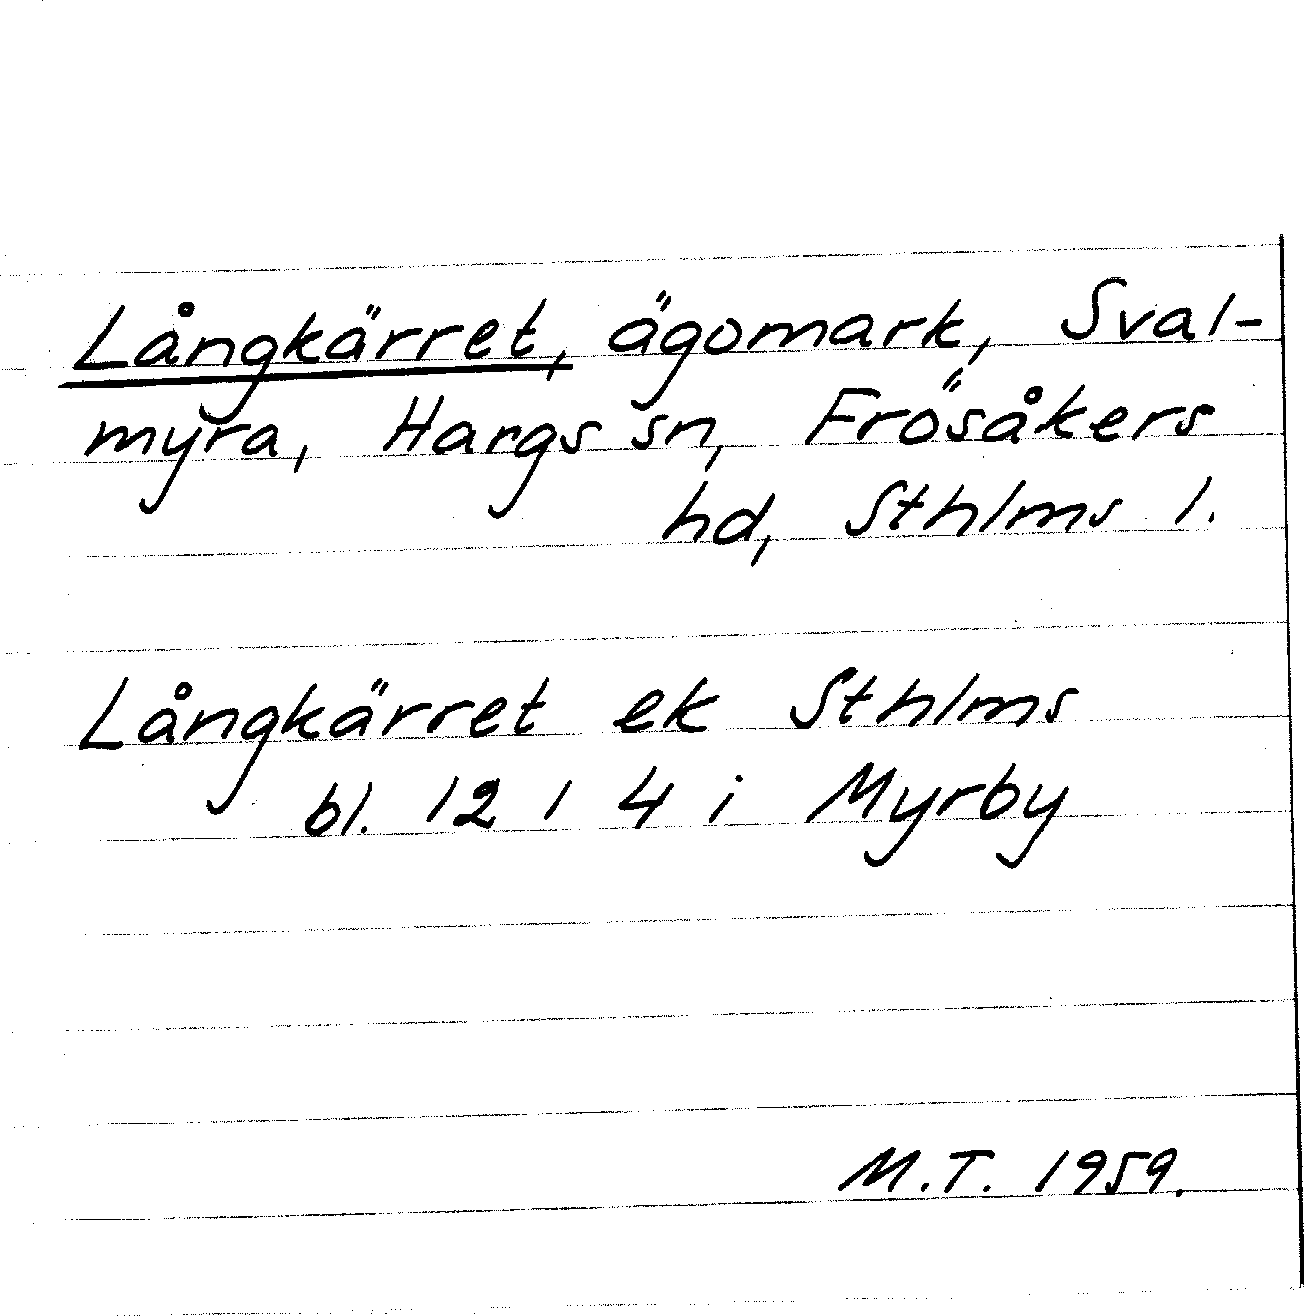 Långkärret, ägomark, Sval-
myra, Hargs sn, Frösåkers
hd, Sthlms l.
Långkärret ek Sthlms
bl. 12 1 4 i Myrby
M.T. 1959.